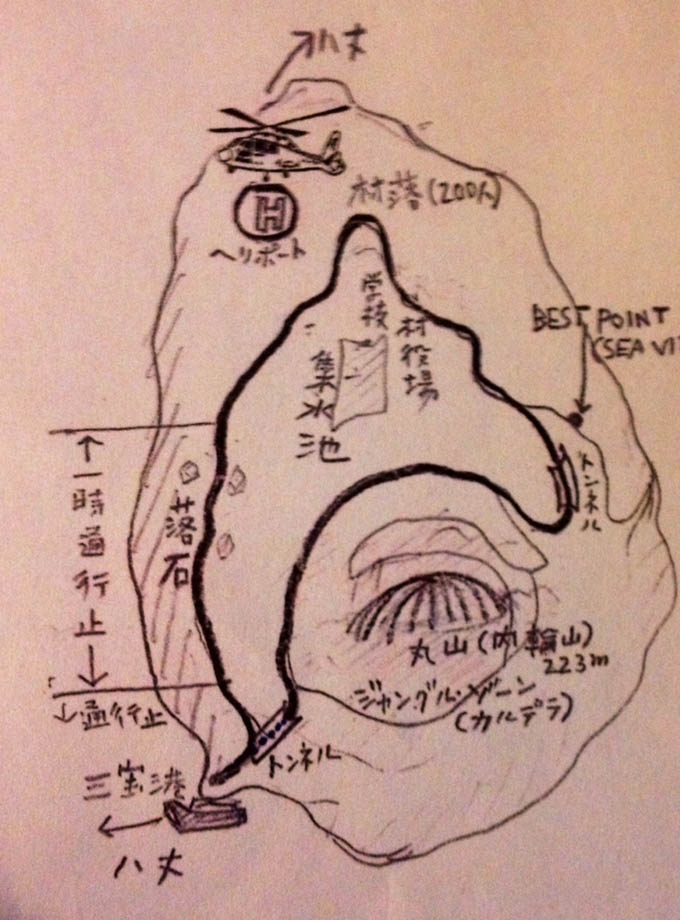 八丈
H
ヘリポート
村落(200人)
学校
村役場
集水池
BEST POINT
(SEA VI
トンネル
落石
一時通行止
丸山(内輪山)
223m
ジャングル・ゾーン
(カルデラ)
通行止
トンネル
三宝港
八丈